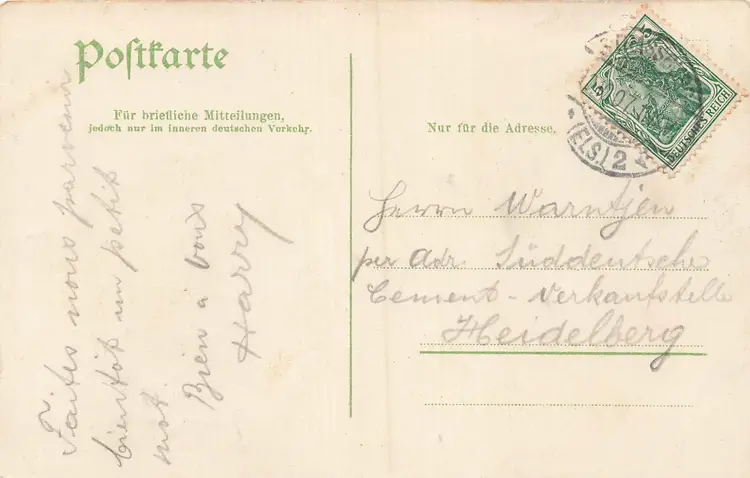 Postkarte
Für briefliche Mitteilungen,
jedoch nur im inneren deutschen Verkehr.
Nur für die Adresse.
DEUTSCHES REICH
(ELS.) 2
Faites nous parvenir
bientôt un petit
mot.
Bien a vous
Harry
Herrn Warntjen
per Adr. Süddeutsche
Cement - Verkaufstelle
Heidelberg